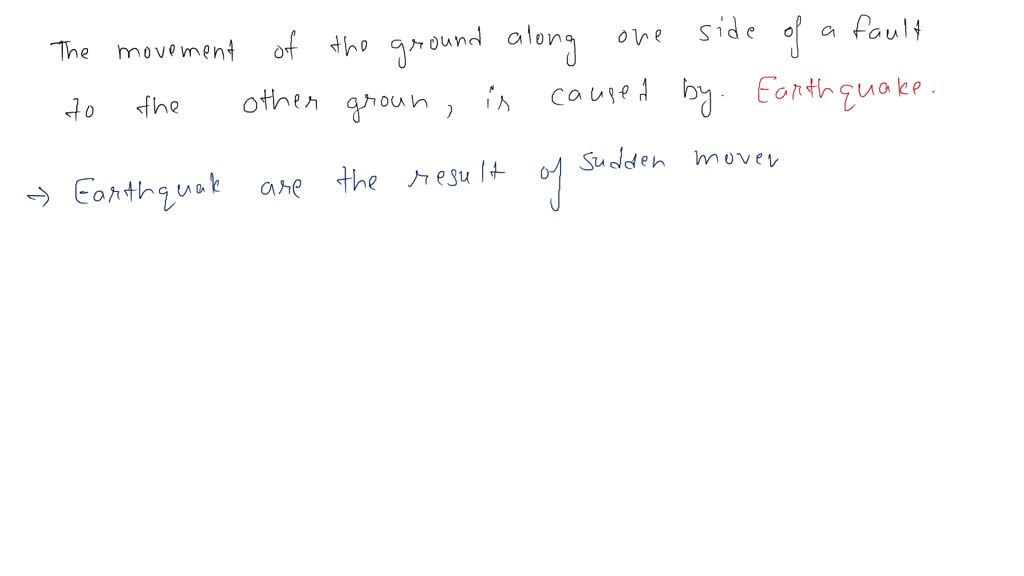 The movement of the ground along one side of a fault
to the other groun, is caused by. Earthquake.
→ Earthquak are the result of sudden mover